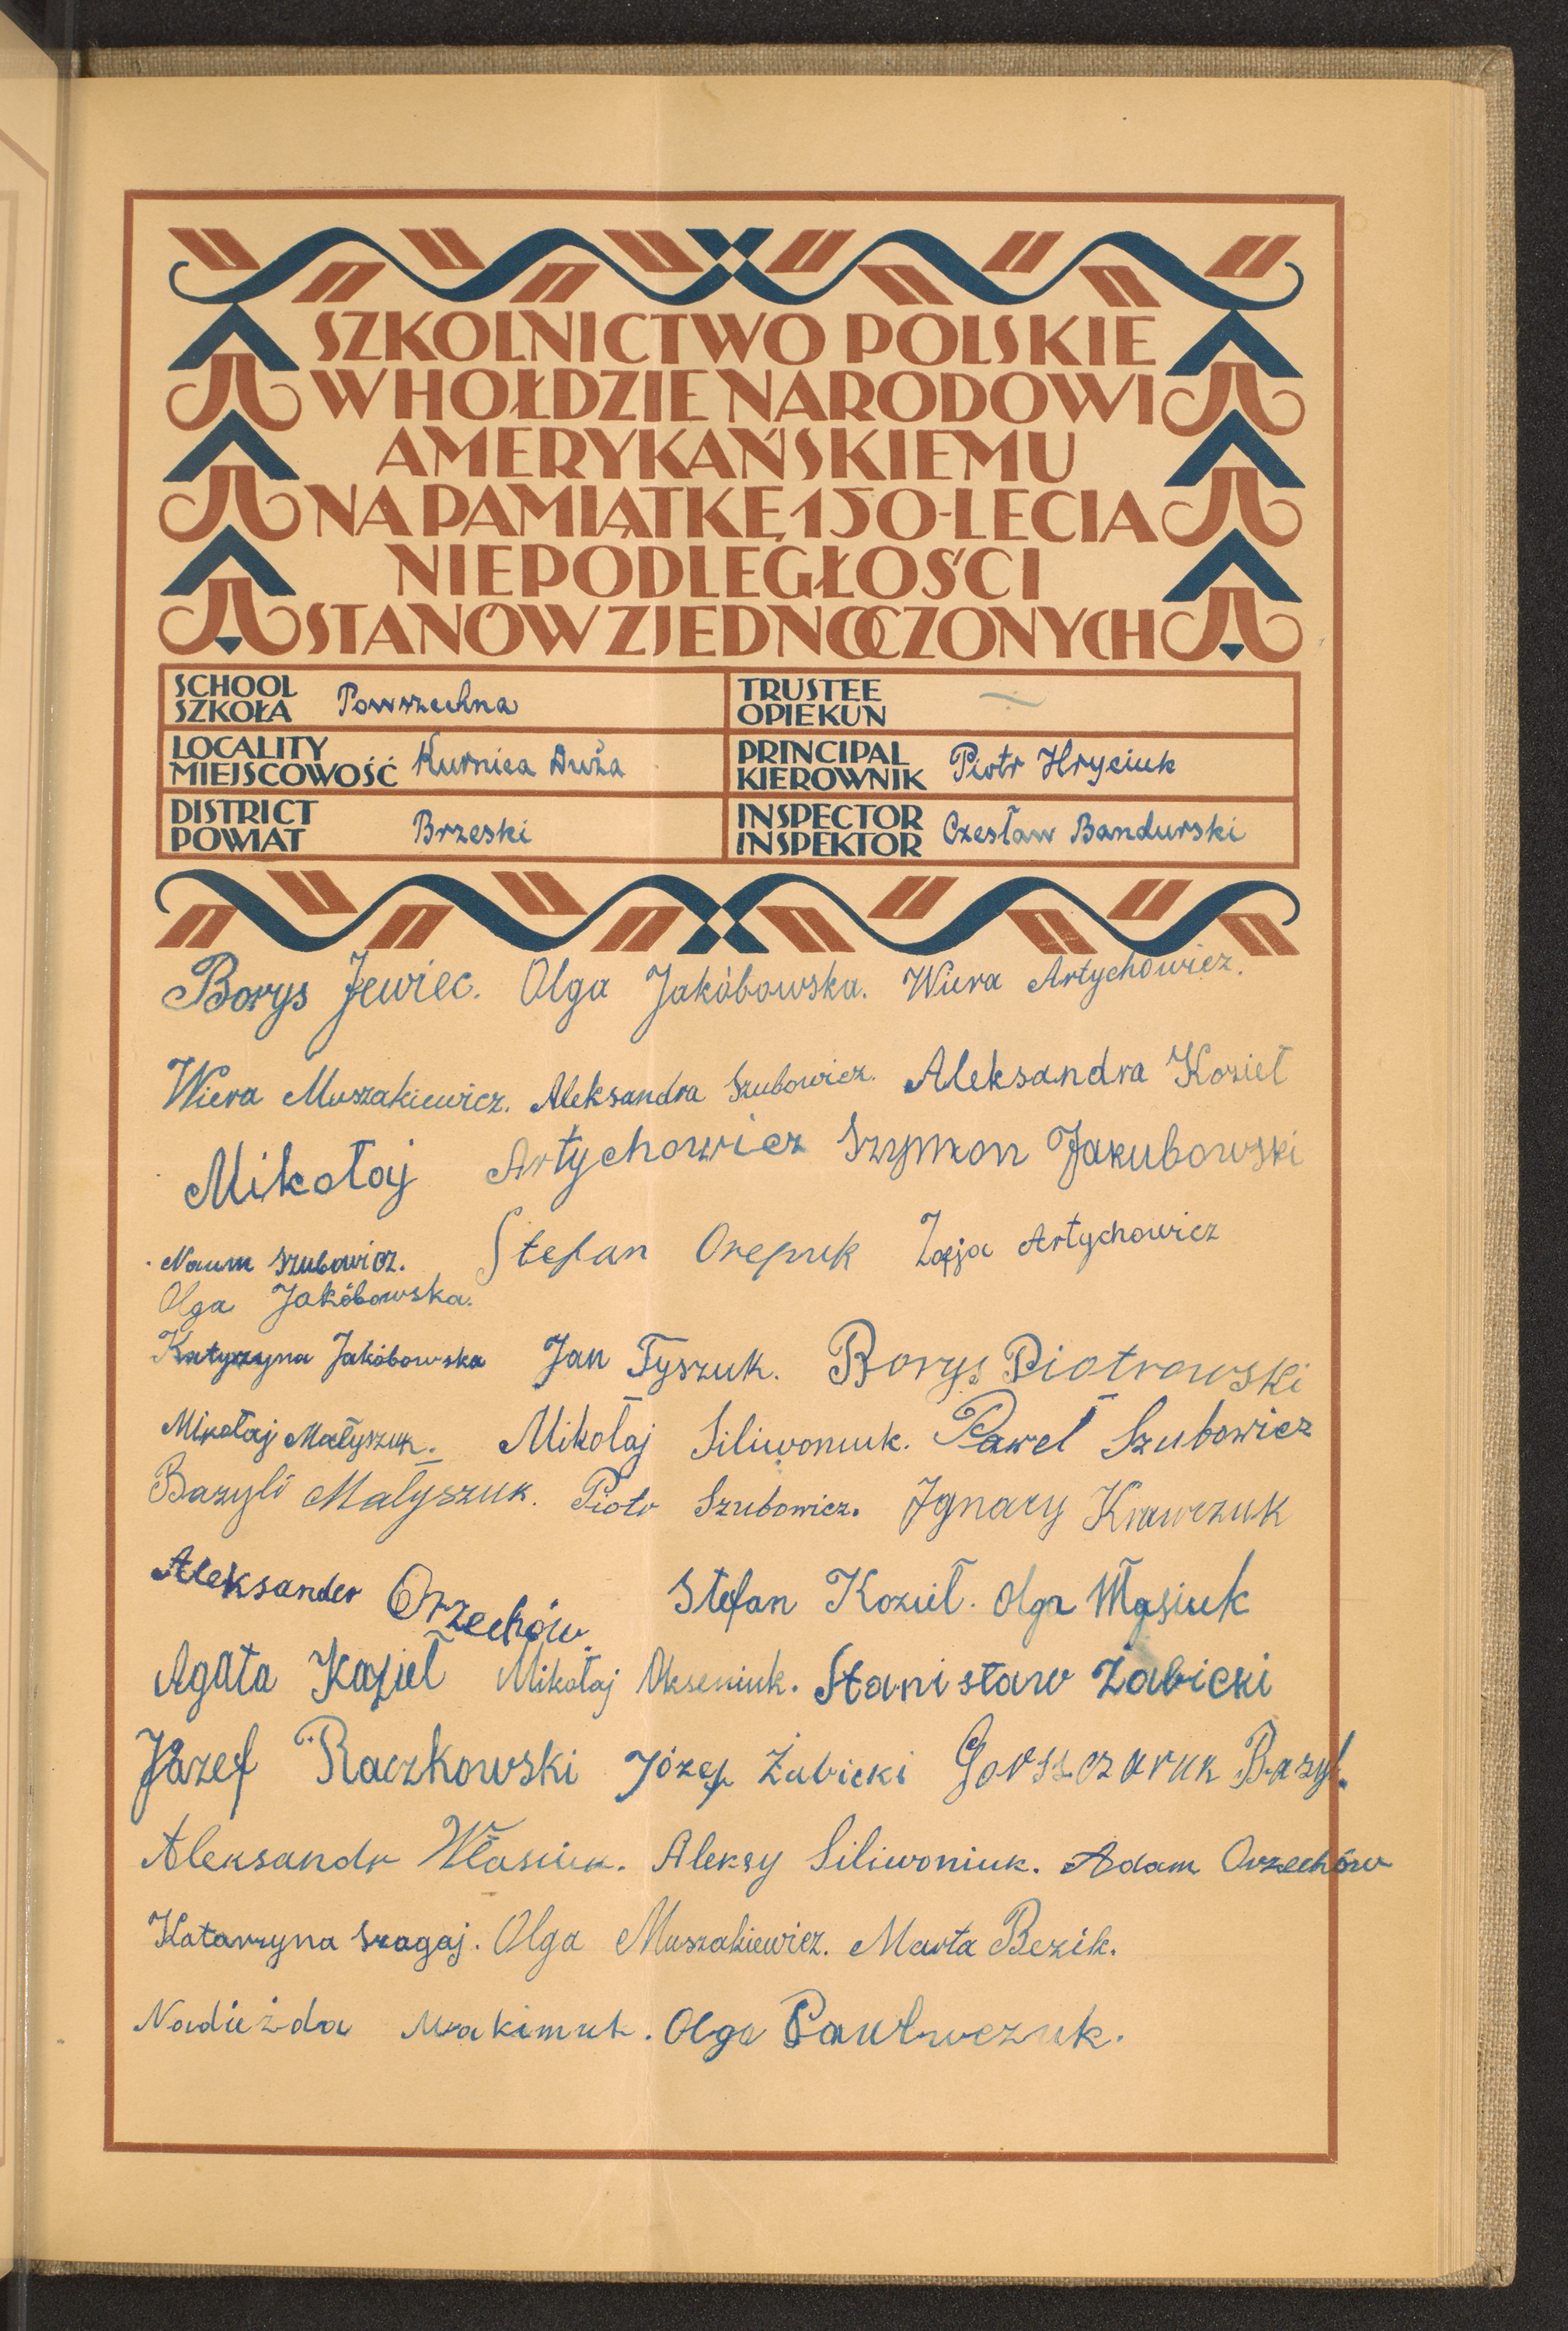 SZKOLNICTWO POLSKIE
W HOŁDZIE NARODOWI
AMERYKAŃSKIEMU
NA PAMIĄTKĘ 150-LECIA
NIEPODLEGŁOŚCI
STANÓW ZJEDNOCZONYCH
SCHOOL
SZKOŁA Powszechna
TRUSTEE
OPIEKUN
LOCALITY
MIEJSCOWOŚĆ Kurnica Duża
PRINCIPAL
KIEROWNIK Piotr Hryciuk
DISTRICT
POWIAT Brzeski
INSPECTOR
INSPEKTOR Czesław Bandurski
Borys Jewiec. Olga Jakóbowska. Wiera Artychowicz.
Wiera Muszakiewicz. Aleksandra Szubowicz. Aleksandra Kozieł
Mikołaj Artychowicz Szymon Jakubowski
Naum Szubowicz. Stefan Orepuk Zofja Artychowicz
Olga Jakóbowska.
Katyrzyna Jakóbowska Jan Tyszuk. Borys Piotrowski
Mikołaj Małyszuk. Mikołaj Siliwoniuk. Paweł Szubowicz
Bazyli Małyszuk. Piotr Szubowicz. Ignacy Krawczuk
Aleksander Orzechów Stefan Kozieł. Olga Własiuk
Agata Kozieł Mikołaj Okseniuk. Stanisław Żabicki
Józef Raczkowski Józef Żabicki Bazyl.
Aleksandr Własiuk. Aleksy Siliwoniuk. Adam Orzechów
Katarzyna Szagaj. Olga Muszakiewicz. Marta Bezik.
Nadieżda Olga Pawluczuk.